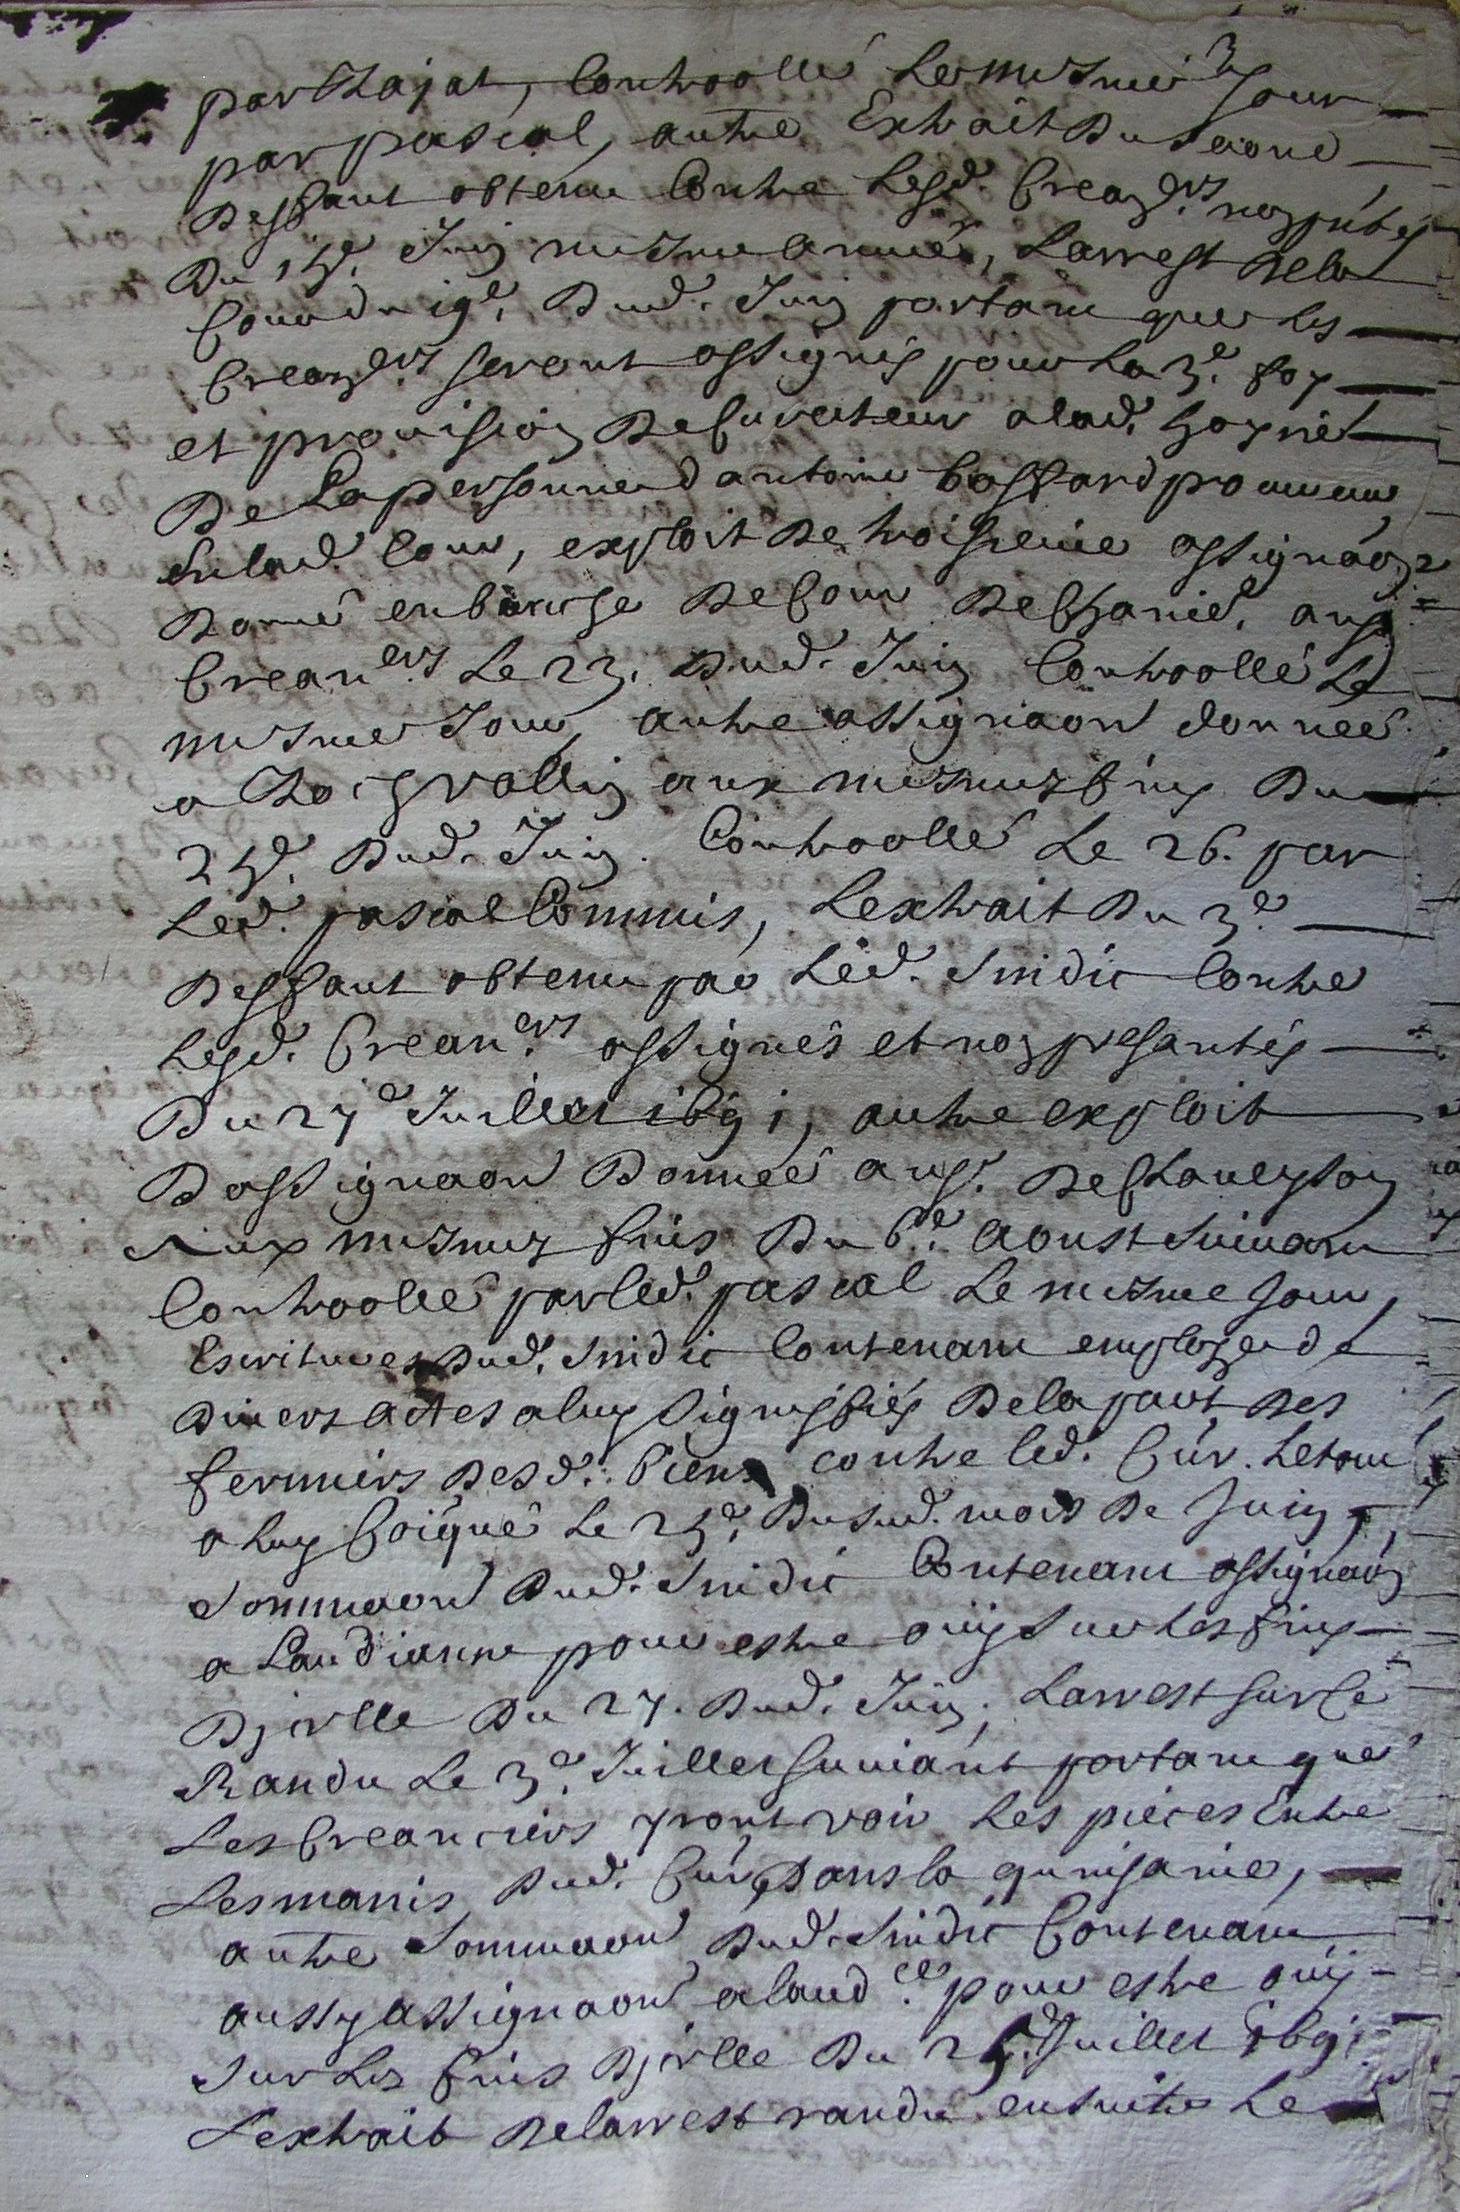 par Chajat, Controollé Le mesme Jour
par pascal, autre Extrait Du Second
Deffaut obtenu Contre Lesd. Crean.ers non pñtés
Du 15e. Juin mesme année, Larrest De la
Cour du 19e. Dud. Juin portant que les
Crean.ers seront assignés pour La 3e. foy
et provision De Curateur a lad. hoyrie
De La personne d'antoine bossard procureur
En lad. Cour, exploit De troisieme assignaôn
Donné au Crean.ers Le 23. Dud. Juin Controollé Le
mesme Jour, autre assignaon donnée
a aux mesmes fins Du
25e. Dud. Juin. Controollé Le 26. par
Led. pascal Commis, Lextrait Du 3e.
Deffaut obtenu par Led. Sindic Contre
Lesd. Crean.ers assignés et non presantés
Du 27e Juillet 1691, autre exploit
D assignaon Donnée au Sr. De
Aux mesmes fins Du 6e. aoust Suivant
Controollé par Led. pascal Le mesme Jour,
Escritures Dud. Sindic Contenant employ de
Divers actes a luy signiffiés De la part Des
fermiers Desd. biens contre led. Cur. Le tout
a luy Coïqué Le 25e. Dusud. mois De Juin,
Sommaon Dud. Sindic Contenant assignaôn
a Laudianne pour estre ouÿ Sur les fins
Dicelle Du 27. Dud. Juin, Larrest sur Ce
Randu Le 3e. Juillet Suivant portant que
Les Creanciers yront voir Les pieces Entre
Les mains Dud. Cur. Dans la quinsaine,
autre Sommaon Dud. Sindic Contenant
aussy assignaon a laud.ce pour estre ouÿ
Sur Les fins Dicelle Du 25e. Juillet 1691
Lextrait De larrest randu ensuite Le